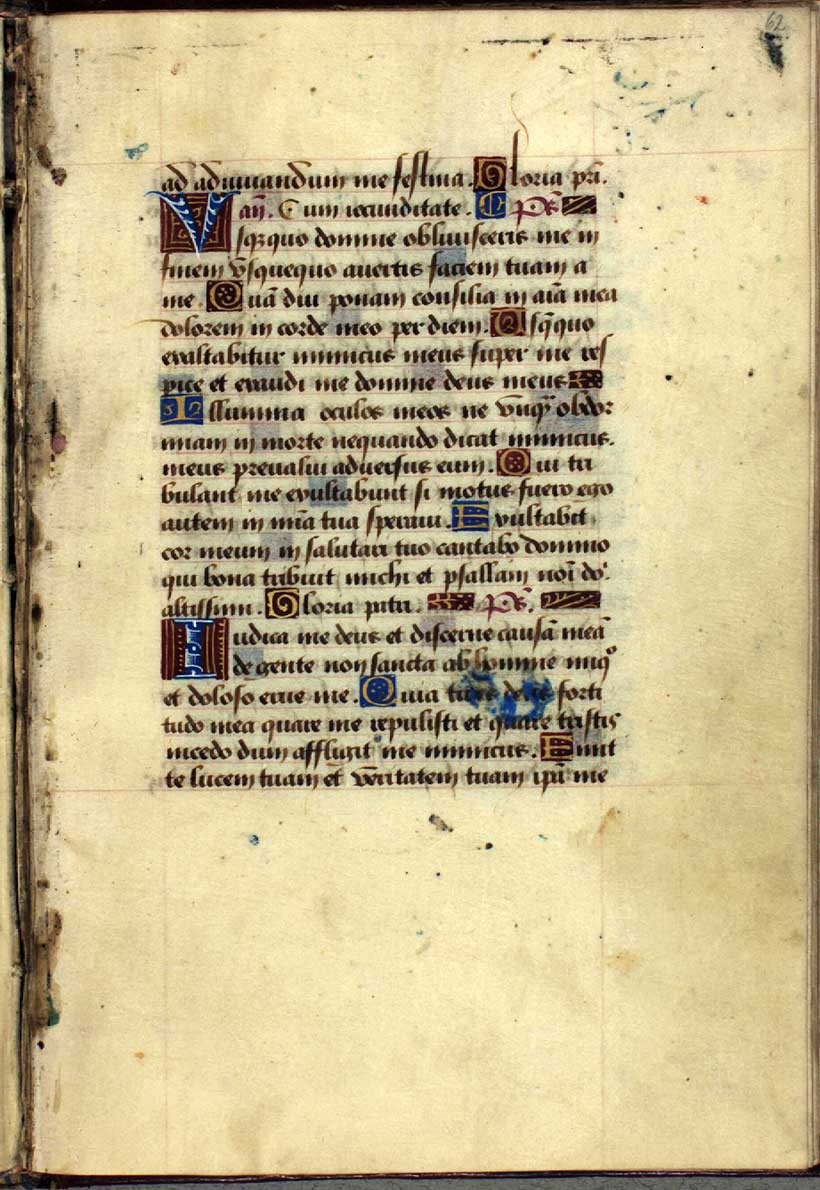 62
ad adiuuandum me festina. Gloria pri.
añ. Cum iocunditate. C ps̄
Vsq3quo domine obliuisceris me in
finem vsquequo auertis faciem tuam a
me. Quādiu ponam consilia in aīa mea
dolorem in corde meo per diem. Usq̄quo
exaltabitur inimicus meus super me res
pice et exaudi me domine deus meus
Illumina oculos meos ne vnq̄ obdor
miam in morte nequando dicat inimicus.
meus preualui aduersus eum. Qui tri
bulant me exultabunt si motus fuero ego
autem in mīa tua speraui. Exultabit
cor meum in salutari tuo cantabo domino
qui bona tribuit michi et psallam noī do.
altissimi. Gloria patri. ps̄.
Iudica me deus et discerne causā meā
de gente non sancta ab homine iniqͦ
et doloso erue me. Quia tu es deus forti
tudo mea quare me repulisti et quare tristis
incedo dum affligit me inimicus. Emit
te lucem tuam et veritatem tuam ip̄a me